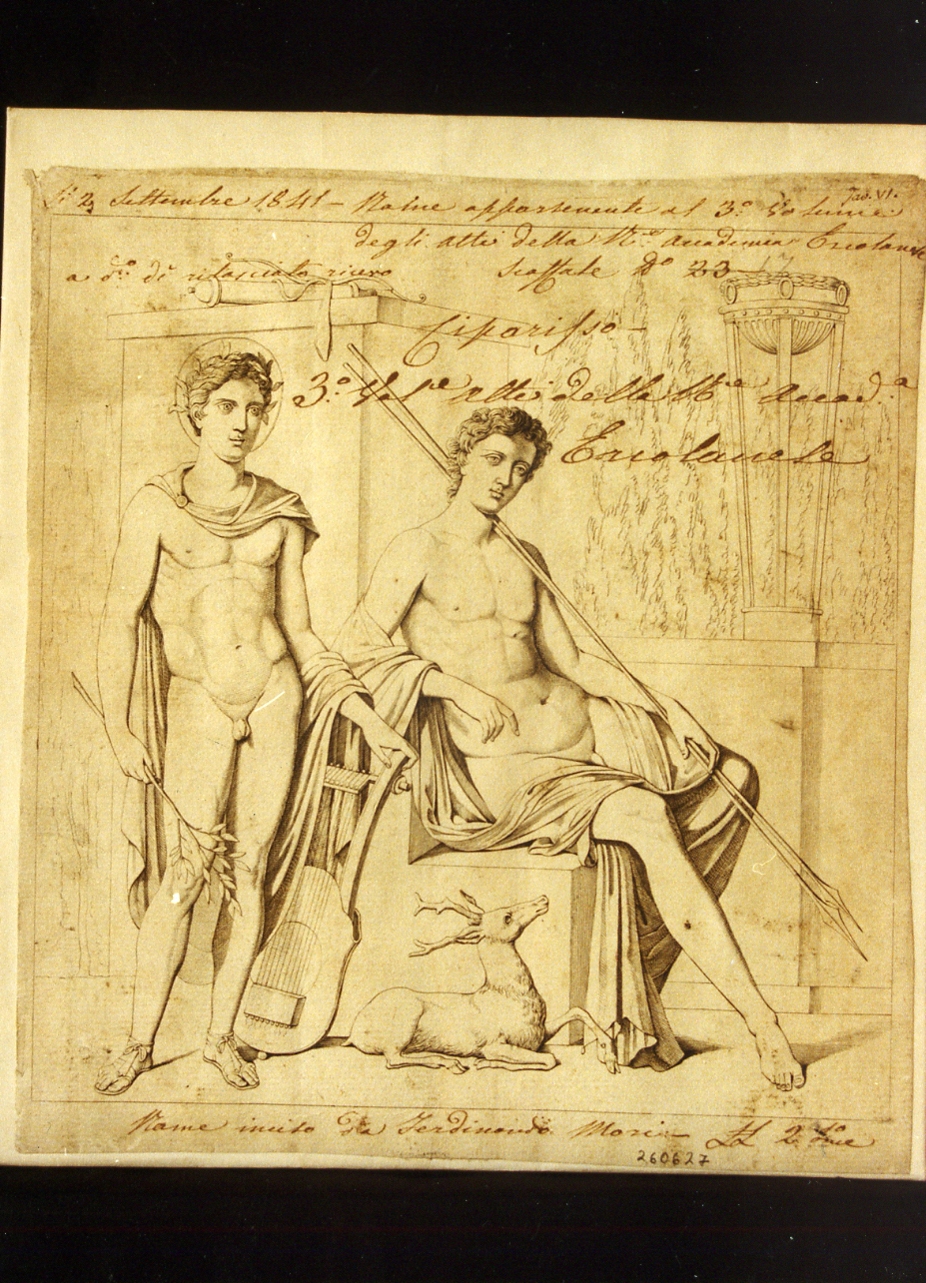 Tav. VI.
li 2 Settembre 1841 - Rame appartenente al 3.º Volume
degli atti della R.ª Accademia Ercolanese
a di rilasciato ricevo Scaffale Nº 23
Ciparisso -
3.º Vol.e Atti della Rle Accad.ª
Ercolanese
Rame inciso da Ferdinando Mori -
260627